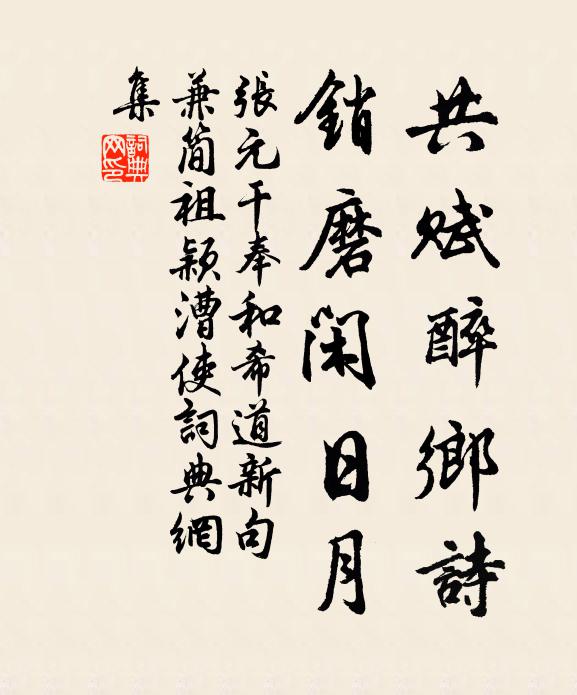 共賦醉鄉詩
銷磨閑日月
張元干奉和希道新句
兼簡祖颖漕使詞典網
集
詞典網印